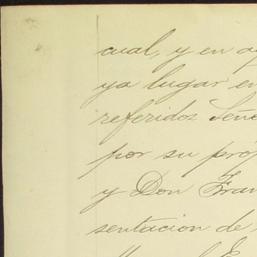 cual, y en
ya lugar en
referidos Seño
por su
y Don Fran
sentacion de